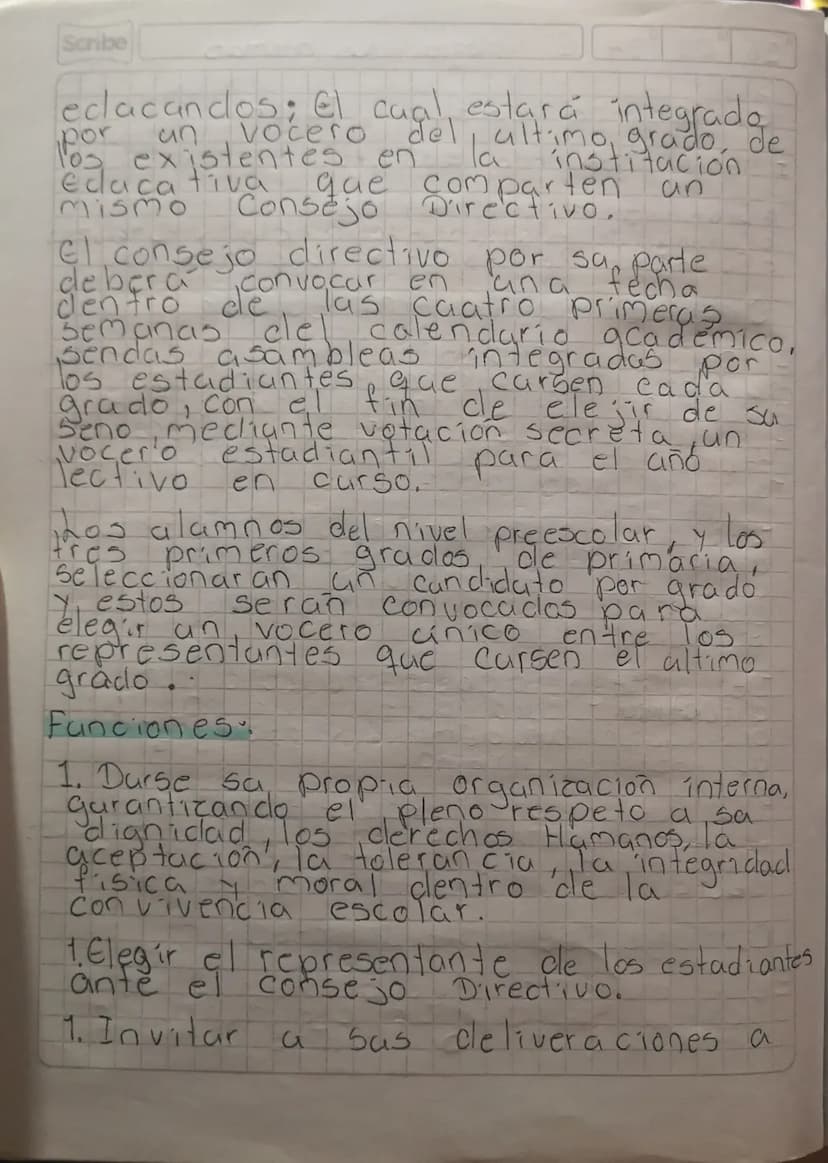 Scribe
educandos; El cual estará integrado
por un vocero del ultimo grado, de
los existentes en la institución
educativa que comparten un
mismo Consejo Directivo.
El consejo directivo por su parte
deberá convocar en una fecha
dentro de las cuatro primeras
semanas del calendario académico,
sendas asambleas integradas por
los estudiantes que cursen cada
grado, con el fin de elejir de su
seno mediante votación secreta, un
vocero estudiantil para el año
lectivo en curso.
Los alumnos del nivel preescolar, y los
tres primeros grados de primaria,
seleccionaran un candidato por grado
y estos seran convocados para
elegir un vocero único entre los
representantes que cursen el ultimo
grado.
Funciones:
1. Darse su propia organización interna,
garantizando el pleno respeto a su
dignidad, los derechos Humanos, la
aceptación, la tolerancia, la integridad
física y moral dentro de la
convivencia escolar.
1. Elegir el representante de los estudiantes
ante el consejo Directivo.
1. Invitar a sus deliveraciones a